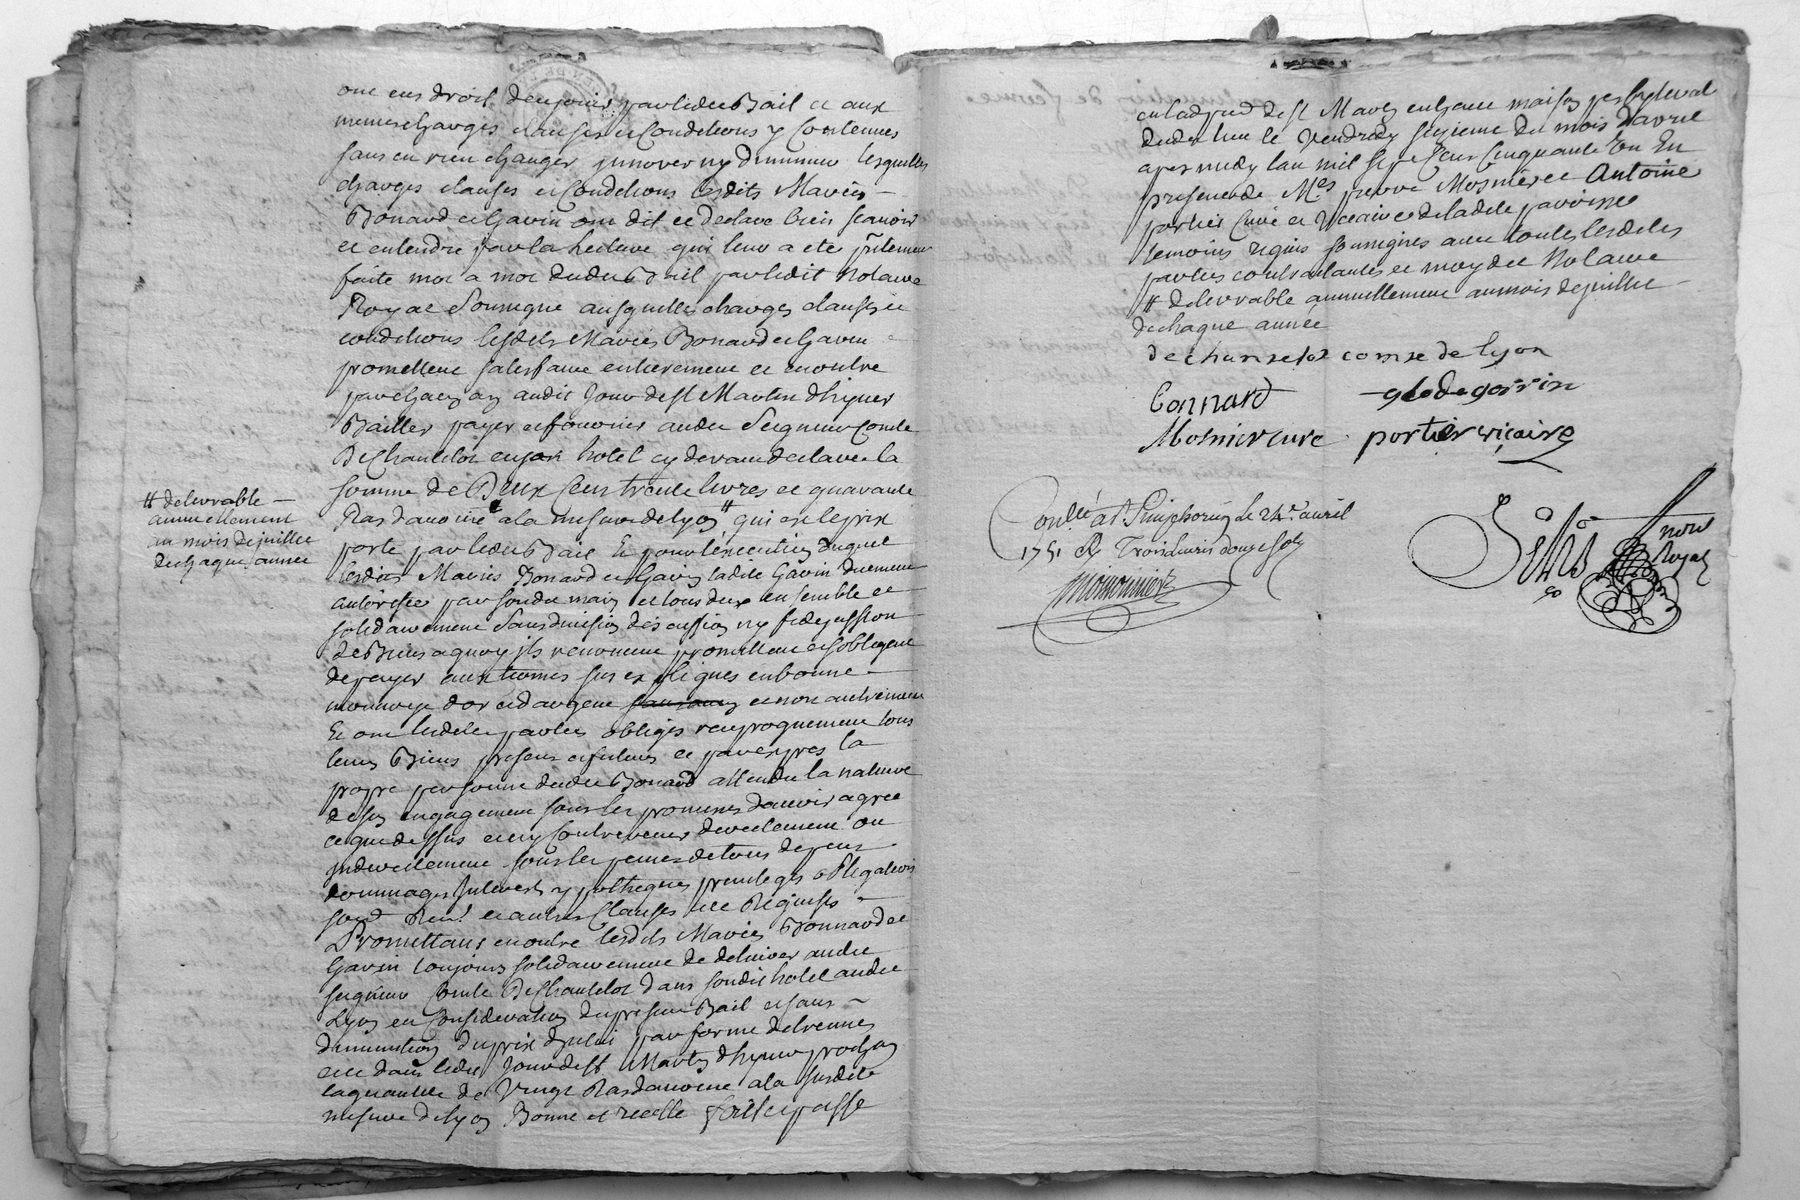 ont eus droit de jouir par ledit Bail et aux
memes charges clauses et Conditions y Contenues
sans en rien changer innover ny diminuer lesquelles
charges clauses et Conditions lesdits Mariés
Bonard et Gavin ont dit et declaré bien scavoir
et entendre par la lecture qui leur a eté pntement
faite mot a mot dudit Bail par ledit Notaire
Royal Soussigné ausquelles charges clauses et
conditions lesdits Mariés Bonard et Gavin
promettent satisfaire entierement et en outre
par chacun an audit Jour de St Martin d'hyver
Bailler payer et fournir audit Seigneur Comte
De Chantelot en son hotel cy devant declaré la
somme de Deux Cens trente livres et quarante
Ras d'avoine a la mesure de Lyon # qui est le prix
porté par ledit Bail Et pour l'execution duquel
lesdits Mariés Bonard et Gavin ladite Gavin duement
autorisée par sondit mary et tous deux ensemble et
solidairement sans division discussion ny fidejussion
de Biens a quoy ils renoncent promettent et s'obligent
de payer aux termes sus expliqués en bonne
monnoye d'or et d'argent et non autrement
Et ont lesdites parties obligés reciproquement tous
leurs Biens presens et futurs et par exprès la
propre personne dudit Bonard attendu la nature
de son engagement sous les promesses d'avoir agreé
ce que dessus et n'y Contrevenir directement ou
indirectement sous les peines de tous depens
dommages Interets ypotheques privileges obligations
soud Ren. et autres Clauses et Requises
Promettans en outre lesdits Mariés Bonnard et
Gavin toujours solidairement de delivrer audit
seigneur Comte De Chantelot dans sondit hotel audit
Lyon en Consideration du present Bail et sans
diminution du prix d'icelui par forme d'étrennes
et dans ledit Jour de St Martin d'hyver prochain
la quantité de Vingt Ras d'avoine a la susdite
mesure de Lyon Bonne et recelle fait et passé
# delivrable
annuellement
au mois de juillet
de chaque année
en ladite de St Maurice en haut maison presbyteral
dudit lieu le Vendredy seizieme du mois d'avril
après midy l'an mil sept Cens Cinquante Un En
presence de Mes pierre Mosnier et Antoine
portier Curé et Vicaire de ladite paroisse
temoins requis soussignés avec toutes lesdites
parties contractantes et moy dit Notaire
# delivrable annuellement au mois de juillet
de chaque année
de chantelot comte de lyon
bonnard glode gavin
Mosnier curé portier vicaire
Conllé a St Simphorien le 24e avril
1751 R Trois livres douze sols
not
Royal